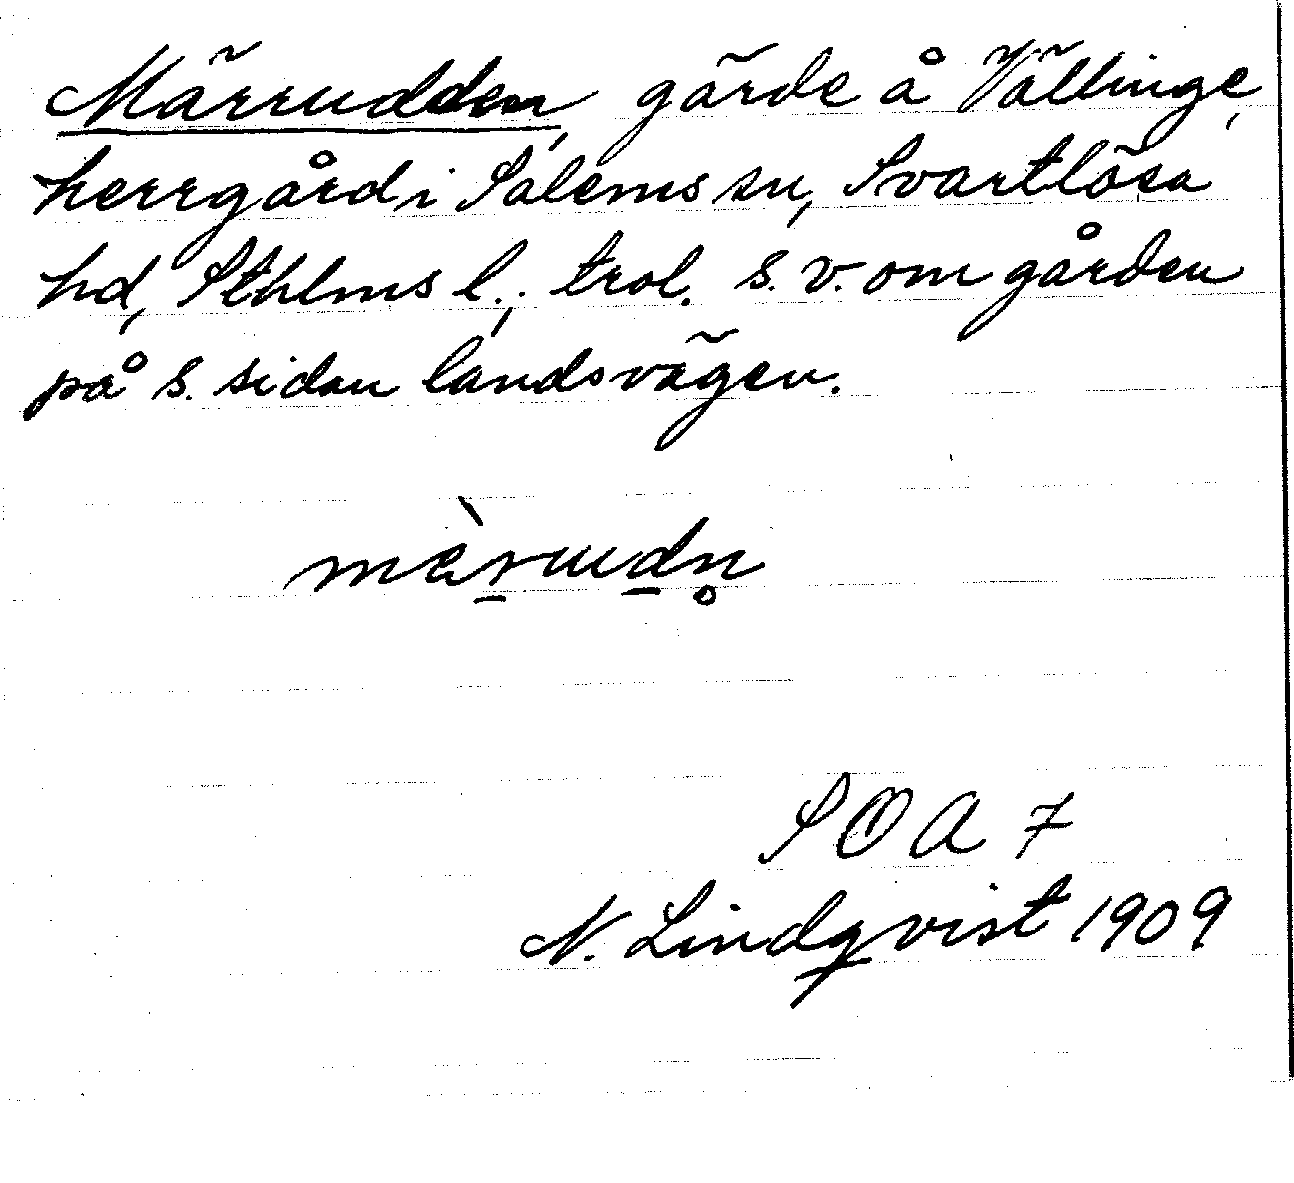 Märrudden, gärde å Vällinge,
herrgård i Salems sn, Svartlösa
hd, Sthlms l.; trol. s.v. om gården
på s. sidan landsvägen.
mä̀r̠ud̠n̥
SOA 7
N. Lindqvist 1909